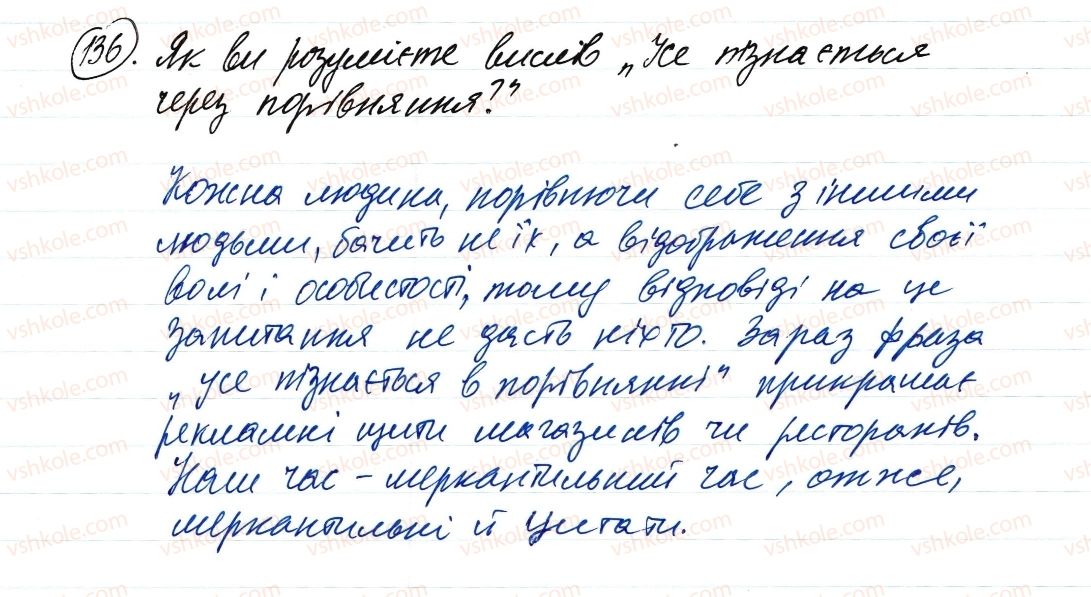 136. Як ви розумієте вислів „Усе пізнається
через порівняння?"
Кожна людина, порівнюючи себе з іншими
людьми, бачить не їх, а відображення своєї
волі і особистості, тому відповіді на це
запитання не дасть ніхто. Зараз фраза
„усе пізнається в порівнянні" прикрашає
рекламні щити магазинів чи ресторанів.
Наш час – меркантильний час, отже,
меркантильні й цитати.